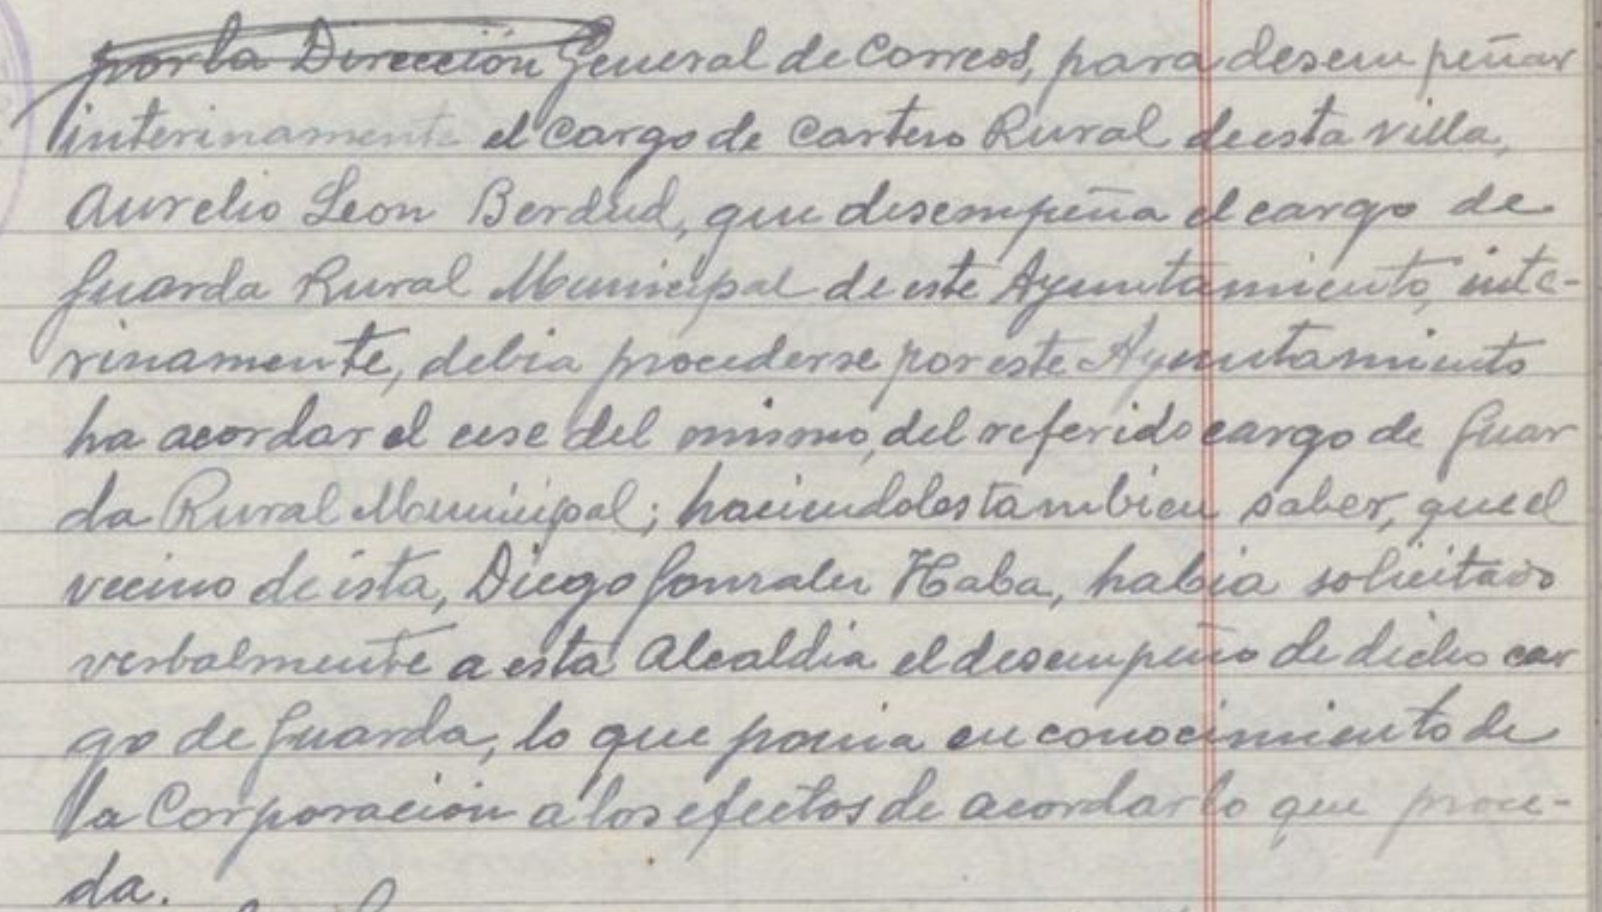 por la Dirección General de Correos, para desempeñar
interinamente el cargo de Cartero Rural de esta villa,
Aurelio Leon Berdud, que desempeña el cargo de
Guarda Rural Municipal de este Ayuntamiento, inte-
rinamente, debia procederse por este Ayuntamiento
ha acordar el cese del mismo, del referido cargo de Guar
da Rural Municipal; haciendoles tambien saber, que el
vecino de ésta, Diego Gonzalez Haba, habia solicitado
verbalmente a esta Alcaldia el desempeño de dicho car
go de Guarda, lo que ponia en conocimiento de
la Corporación a los efectos de acordar lo que proce-
da.